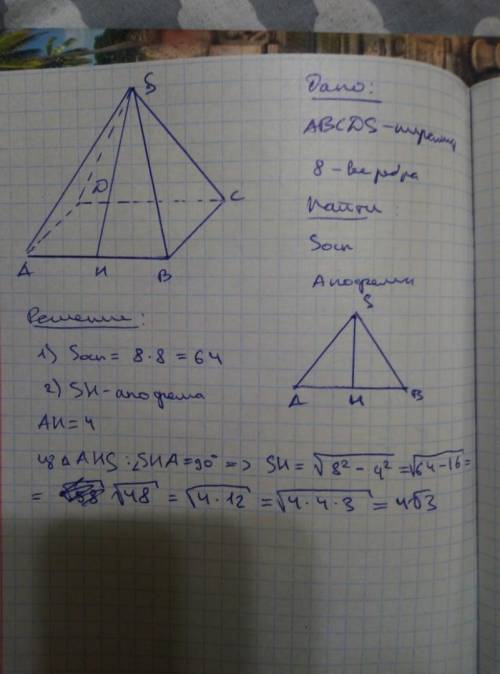 S
D
C
A
H
B
Дано:
ABCDS - пирамид
8 - все ребра
Найти
Sосн
Апофемы
S
A
H
B
Решение:
1) Sосн = 8·8 = 64
2) SH - апофема
AH = 4
из △AHS: ∠SHA = 90° => SH = √8² - 4² = √64-16 =
= √48 = √4·12 = √4·4·3 = 4√3